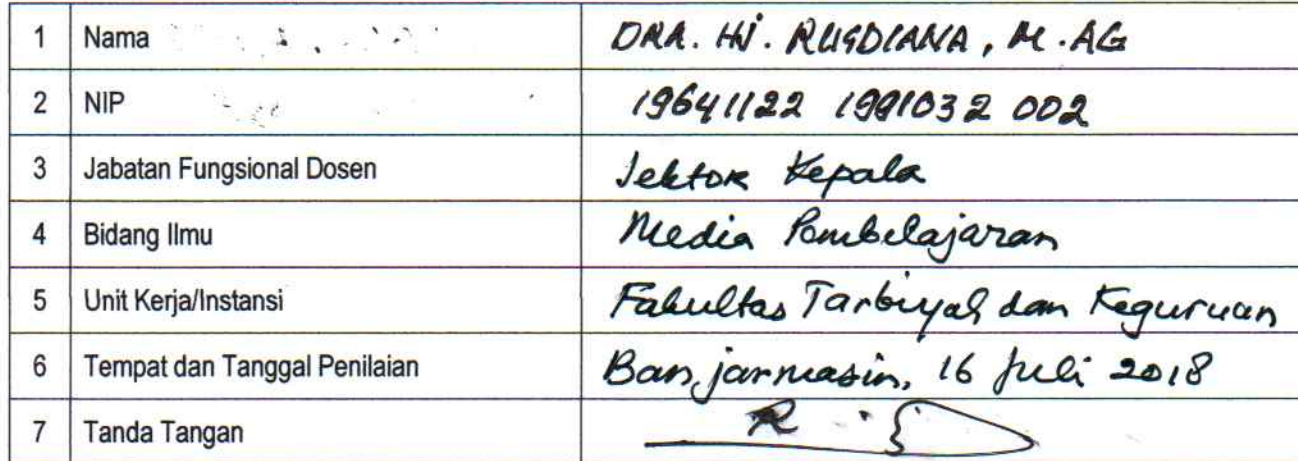 1 Nama DRA. HJ. RUSDIANA, M.AG
2 NIP 19641122 1991032 002
3 Jabatan Fungsional Dosen Lektor Kepala
4 Bidang Ilmu Media Pembelajaran
5 Unit Kerja/Instansi Fakultas Tarbiyah dan Keguruan
6 Tempat dan Tanggal Penilaian Banjarmasin, 16 Juli 2018
7 Tanda Tangan